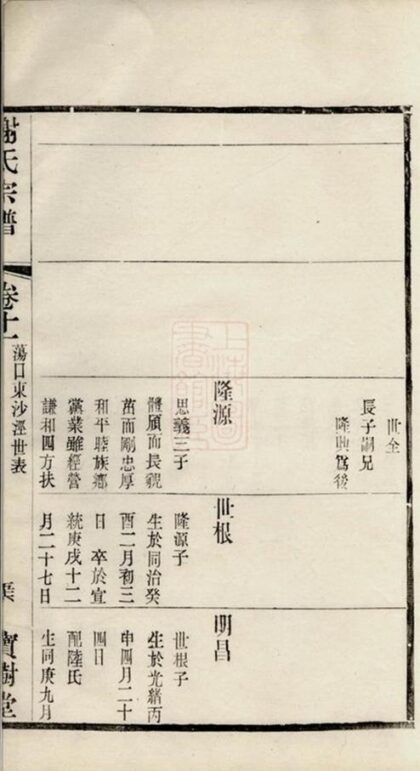 世全
長子嗣兄
隆興爲後
隆源
思義三子
體頎而長貌
而剛忠厚
和平睦族鄉
黨業雖經營
謙和四方扶
世根
隆源子
生於同治癸
酉二月初三
日 卒於宣
統庚戌十二
月二十七日
明昌
世根子
生於光緒丙
申四月二十
四日
配陸氏
生同庚九月
謝氏宗譜
卷十一
蕩口東沙涇世表
寶樹堂
上海圖書館藏